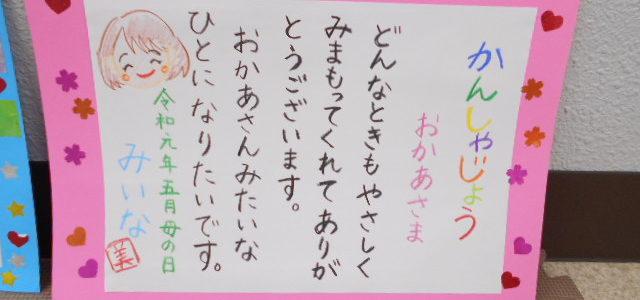 かんしゃじょう
おかあさま
どんなときもやさしく
みまもってくれてありが
とうございます。
おかあさんみたいな
ひとになりたいです。
令和元年五月母の日
みいな
美